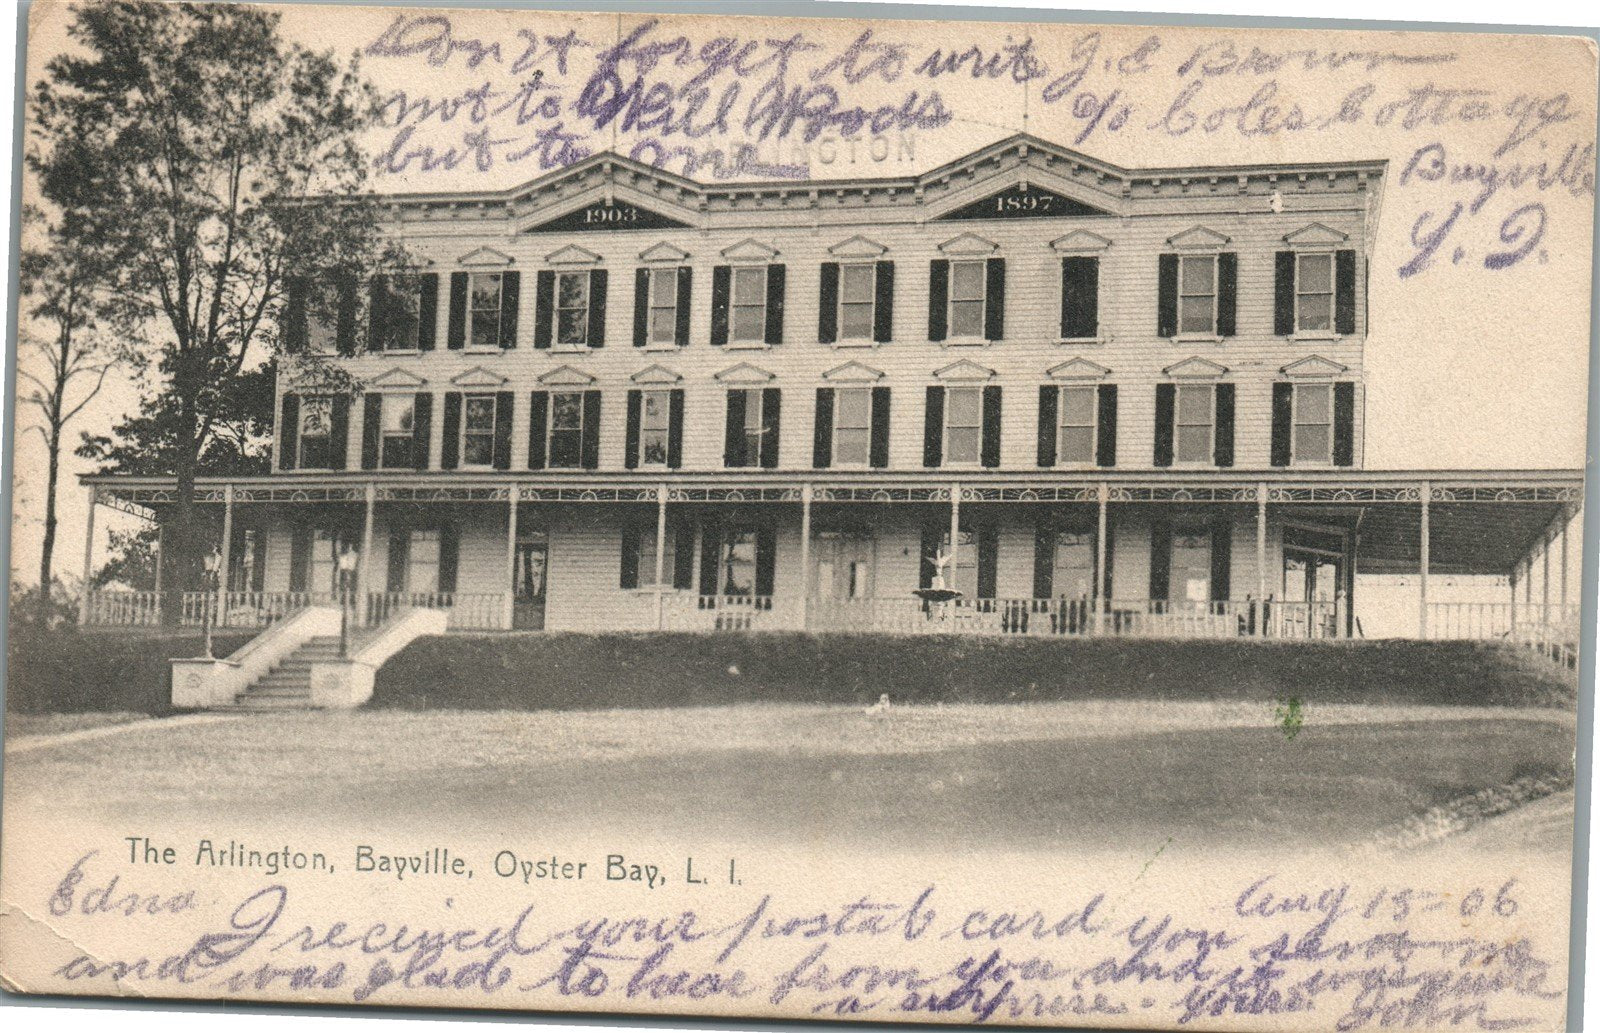 Don't forget to write
not to Will Woods
but to me
J. C Brown
c/o Coles Cottage
Bayville
L. I.
ARLINGTON
1903
1897
The Arlington, Bayville, Oyster Bay, L. I.
Edna
Aug 15-06
I recieved your postal card you sent me
and was glad to hear from you and it was quite
a surprise. yours. John